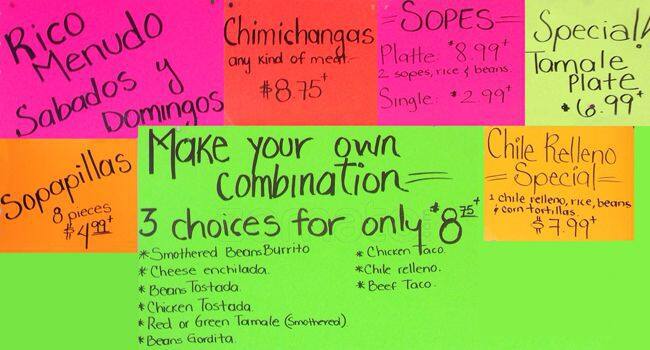 Rico
Menudo
Sabados y
Domingos
Chimichangas
any kind of meat.
$8.75+
=SOPES=
Platte: $8.99+
2 sopes, rice & beans.
Single: $2.99+
Special!
Tamale
Plate
$6.99+
Sopapillas
8 pieces
$4.99+
Make your own
combination=
3 choices for only $8.75+
*Smothered Beans Burrito
*Cheese enchilada.
*Beans Tostada.
*Chicken Tostada.
*Red or Green Tamale (Smothered)
*Beans Gordita.
*Chicken Taco.
*Chile relleno.
*Beef Taco.
Chile Relleno
=Special=
1 chile relleno, rice, beans
& corn tortillas.
$7.99+